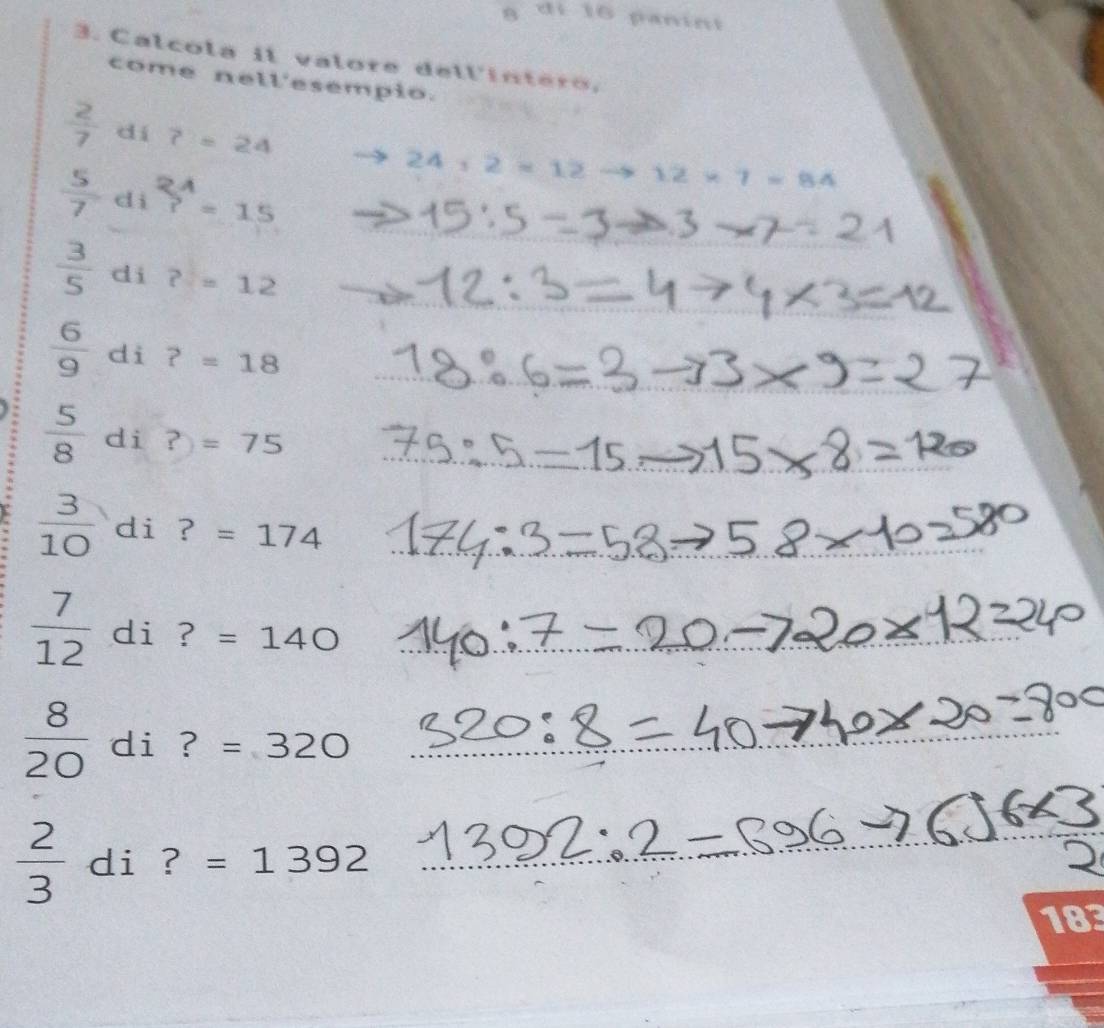 8 di 16 panini
3. Calcola il valore dell'intero,
come nell'esempio.
2/7 di ? = 24 → 24 : 2 = 12 → 12 × 7 = 84
5/7 di ? 21 = 15 → 15 : 5 = 3 → 3 × 7 = 21
3/5 di ? = 12 → 12 : 3 = 4 → 4 × 3 = 12
6/9 di ? = 18 18 : 6 = 3 → 3 × 9 = 27
5/8 di ? = 75 75 : 5 = 15 → 15 × 8 = 120
3/10 di ? = 174 174 : 3 = 58 → 58 × 10 = 580
7/12 di ? = 140 140 : 7 = 20 → 20 × 12 = 240
8/20 di ? = 320 320 : 8 = 40 → 40 × 20 = 800
2/3 di ? = 1392 1392 : 2 = 696 → 696 × 3
2
183